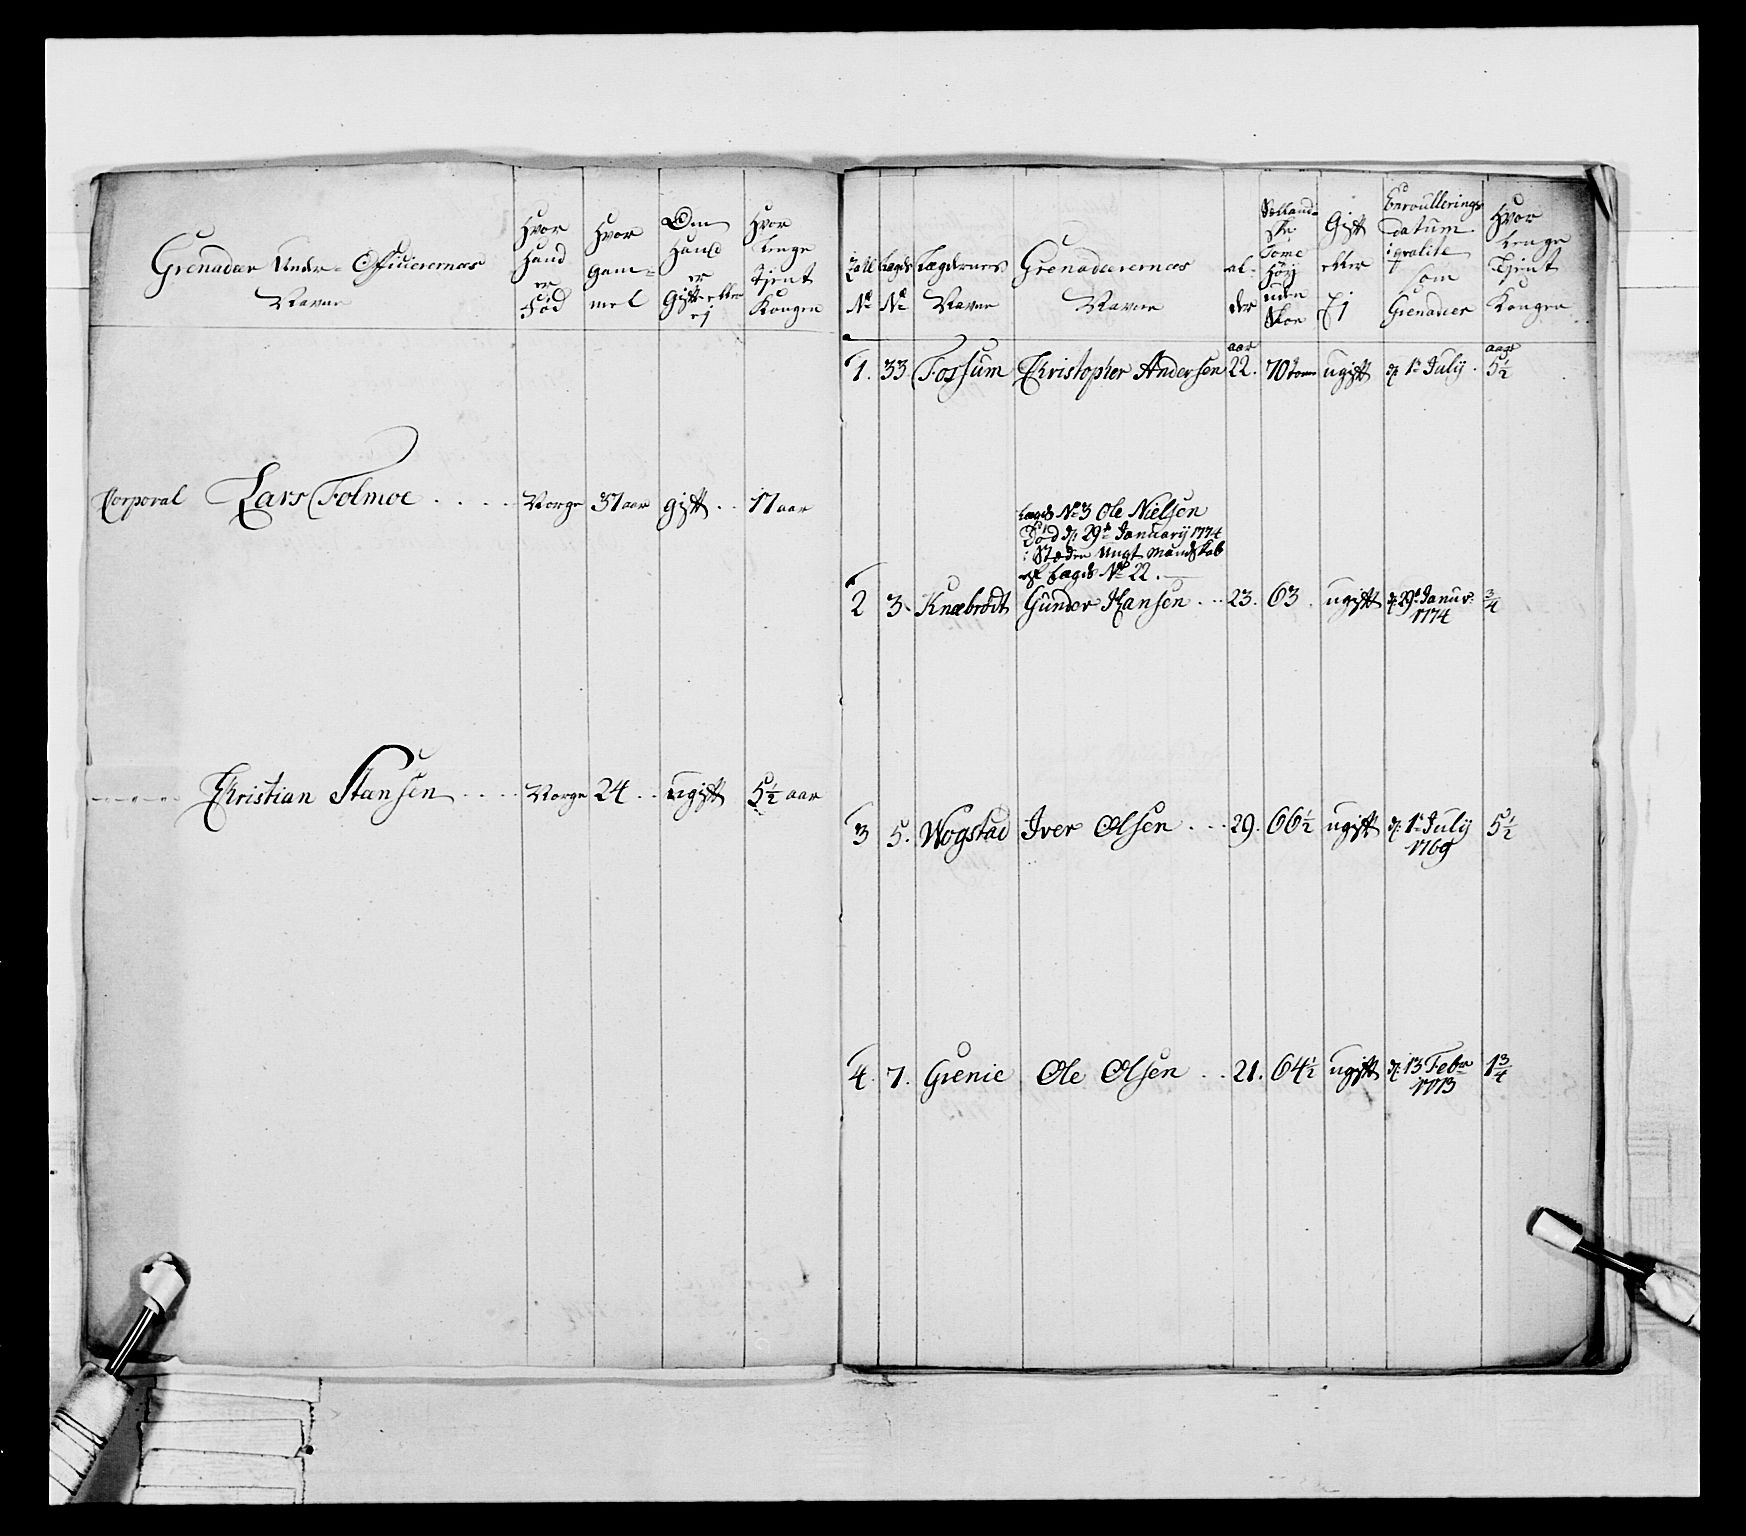 Grenadeer Under-Officerernes
Navne
Hvor
Hand
er
Fød
Hvor
gam-
mel
Om
Hand
er
Gift eller
ej
Hvor
Lenge
Tjent
Kongen
Corporal Lars Folmoe . . . . . Norge 37 aar gift . . 17 aar
Christian Hansen . . . . Norge 24 . . ugift 5½ aar
No
Lægds
No
Lægdernes
Navne
Grenadeerernes
Navne
al-
der
Sælland-
ske
Tome
Høy
uden
Skoe
Gift
eller
Ej
Enroullerings
datum
i qvalite
som
Grenadeer
Hvor
Lenge
Tjent
Kongen
aar aar
1. 33 Fossum Christopher Andersen 22. 70 tom ugift d. 1te July. 5½
Lægds No 3 Ole Nielsen
Død d. 29de January 1774
i Steden Ungt Mandskab
af Lægds No 22.
2 3. Knæbrødt Gunder Hansen . . 23. 63. ugift d. 29de Janur. ¾
1774
3 5. Wogstad Iver Olsen . . . 29. 66½ ugift d. 1te July 5½
1769
4. 7. Grenie Ole Olsen . . 21. 64½ ugift d. 13 Febr 1¾
1773